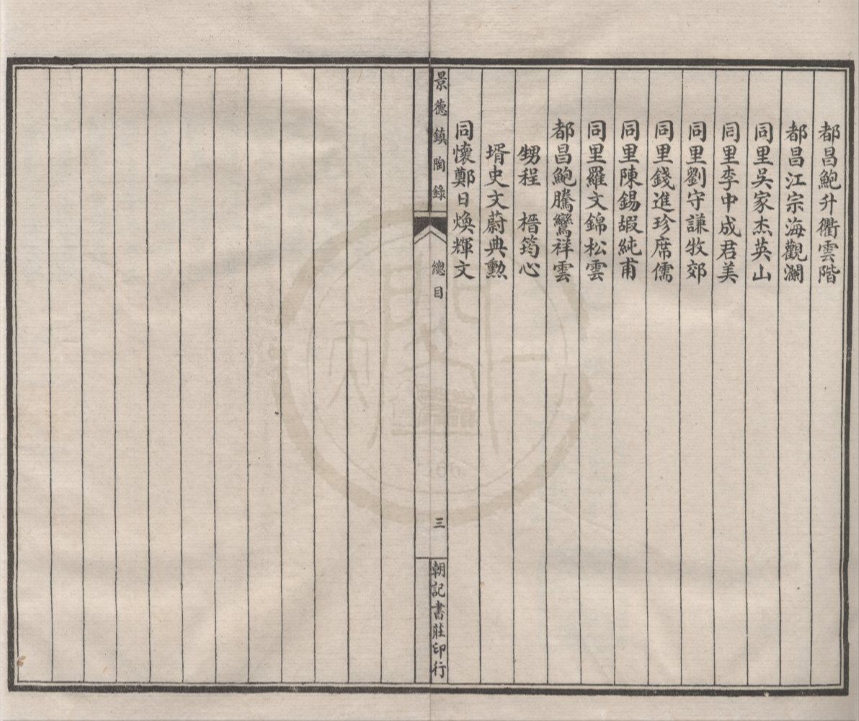 都昌鮑升衢雲階
都昌江宗海觀瀾
同里吳家杰英山
同里李中成君美
同里劉守謙牧郊
同里錢進珍席儒
同里陳錫嘏純甫
同里羅文錦松雲
都昌鮑騰鸞祥雲
甥程　榗筠心
壻史文蔚典勲
同懷鄭日煥輝文
景德鎮陶錄
總目
三
朝記書莊印行